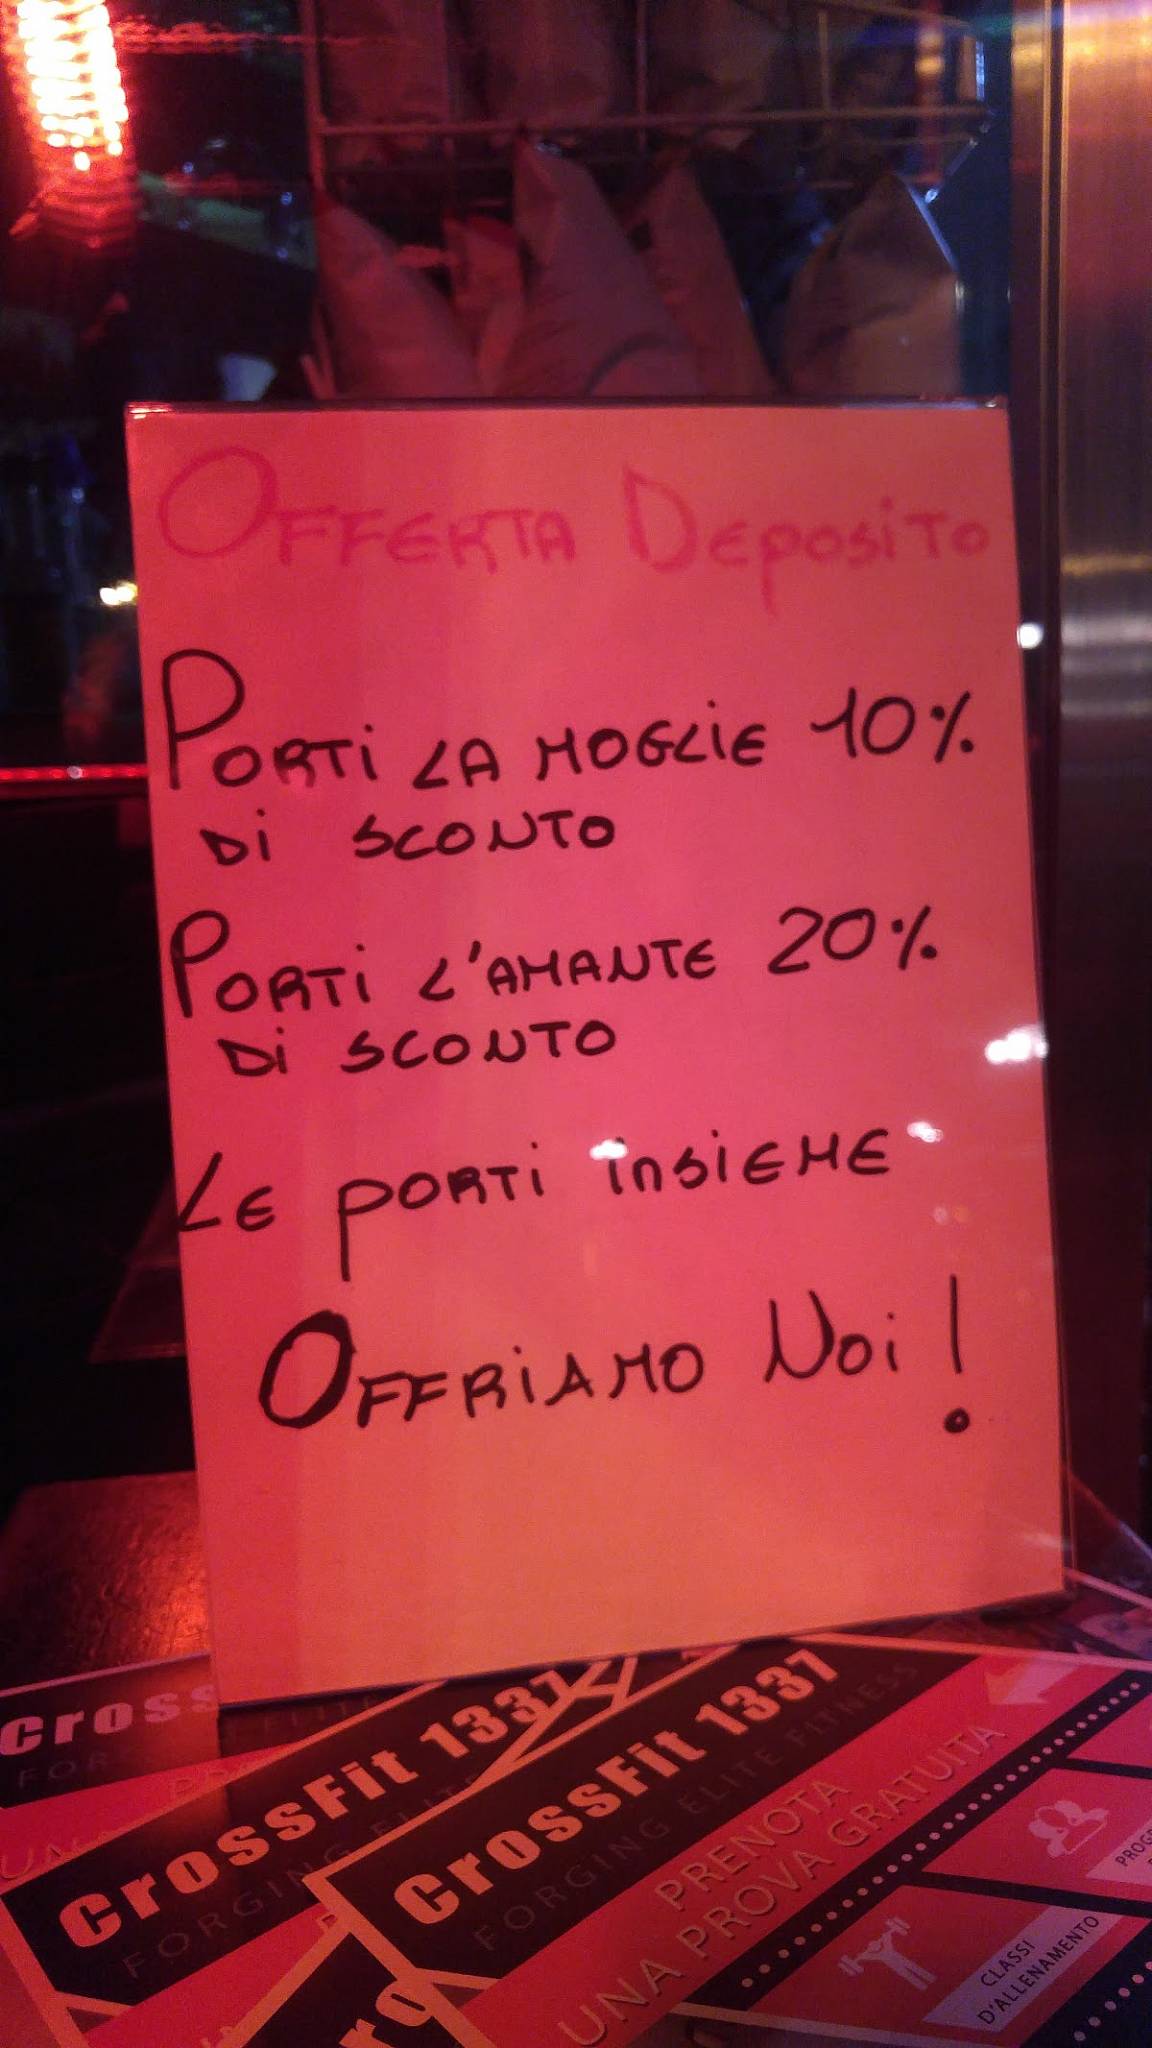 Offerta Deposito
Porti la moglie 10%
di sconto
Porti l'amante 20%
di sconto
Le porti insieme
Offriamo Noi!
Cross
FOR
CrossFit 1337
FORGING ELITE
CrossFit 1337
FORGING ELITE FITNESS
PRENOTA
UNA PROVA GRATUITA
CLASSI
D'ALLENAMENTO